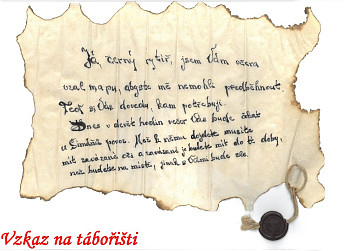 Já, černý rytíř, jsem Vám včera
vzal mapu, abyste mě nemohli předběhnout.
Teď si Vás dovedu, kam potřebuji.
Dnes v devět hodin večer Vás bude čekat
u povoz. Než k němu dojdete musíte
mít zavázané oči a zavázaní je budete mít do té doby,
než budete na místě, jinak s Vámi bude zle.
Vzkaz na tábořišti